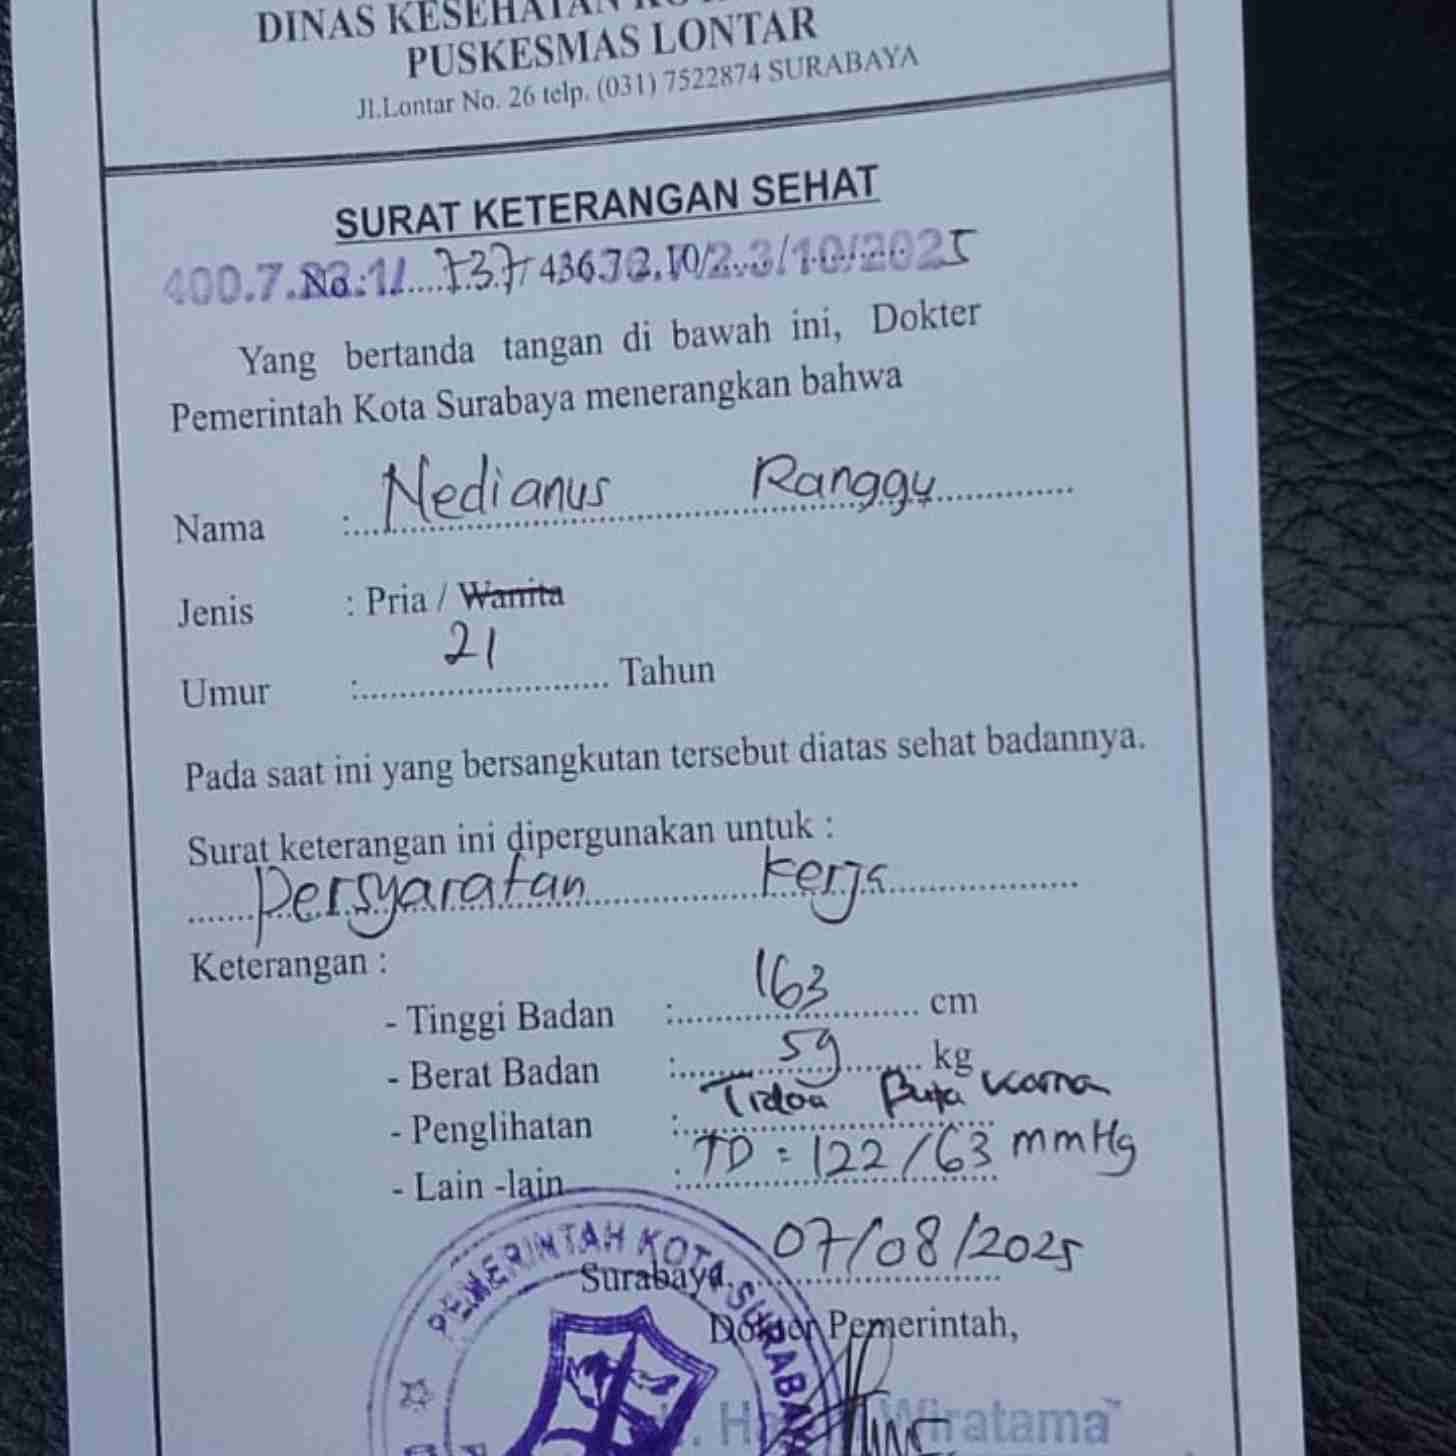 DINAS KESEHATAN
PUSKESMAS LONTAR
Jl.Lontar No. 26 telp. (031) 7522874 SURABAYA
SURAT KETERANGAN SEHAT
737 2025
Yang bertanda tangan di bawah ini, Dokter
Pemerintah Kota Surabaya menerangkan bahwa
Nama : Nedianus Ranggu
Jenis : Pria / Wanita
Umur : 21 Tahun
Pada saat ini yang bersangkutan tersebut diatas sehat badannya.
Surat keterangan ini dipergunakan untuk :
Persyaratan Kerja
Keterangan :
- Tinggi Badan : 163 cm
- Berat Badan : 59 kg
- Penglihatan : Buta Warna
- Lain -lain : TD = 122/63 mmHg
PEMERINTAH KOTA SURABAYA
Surabaya, 07/08/2025
Dokter Pemerintah,
Wiratama